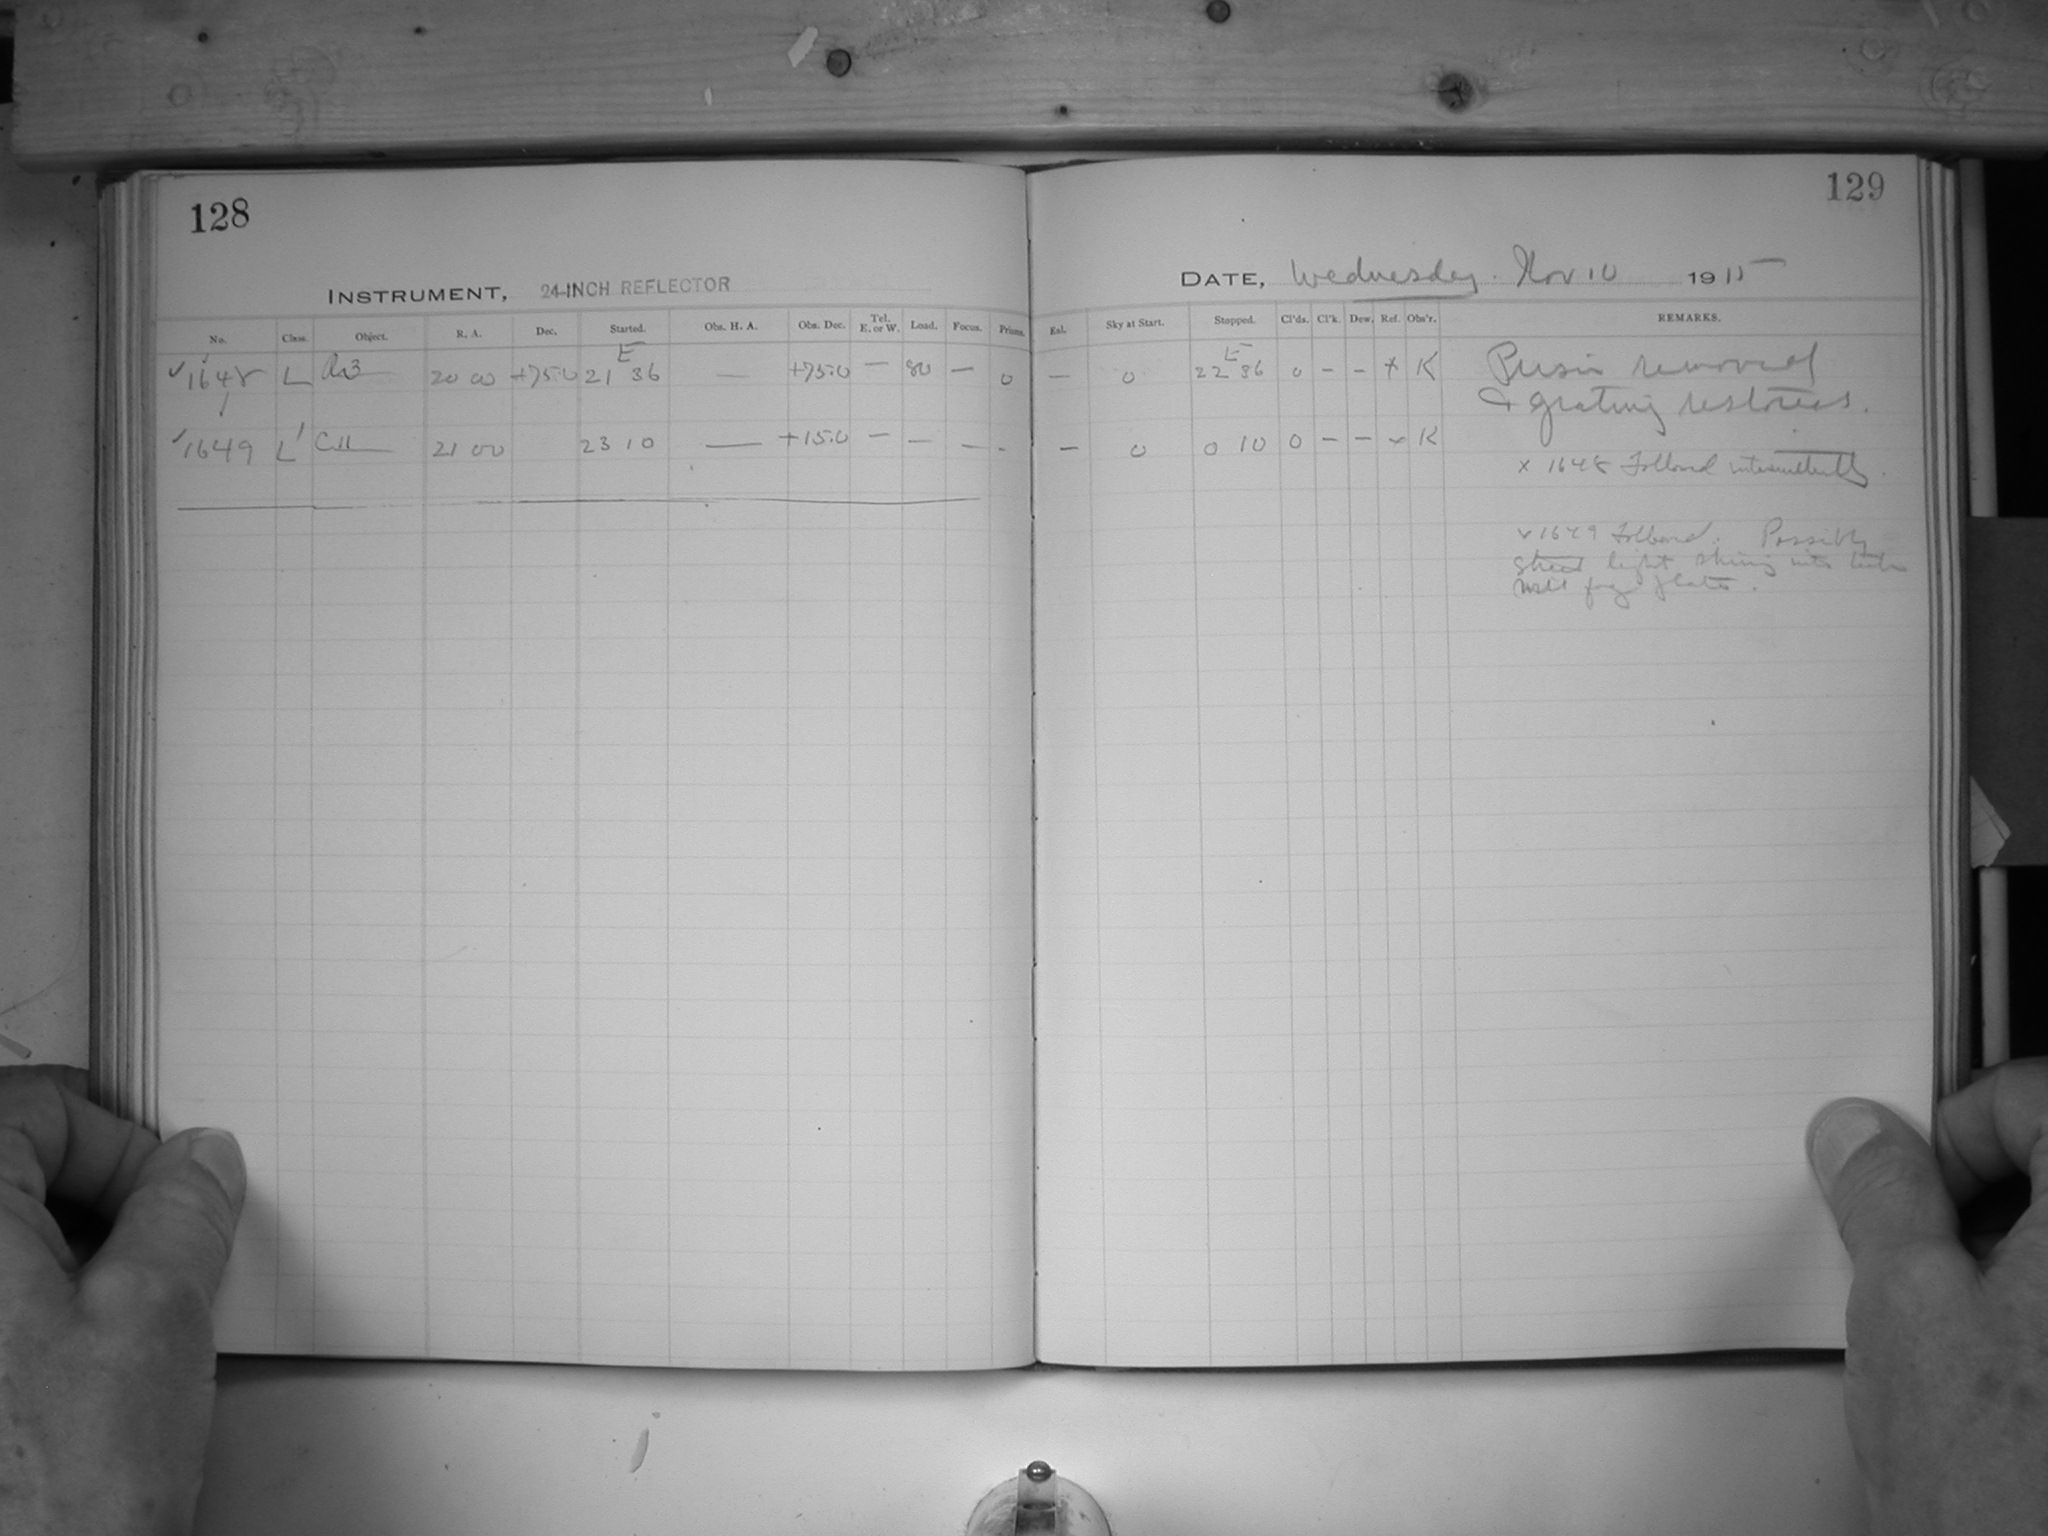 128
INSTRUMENT, 24-INCH REFLECTOR
No. Class. Object. R. A. Dec. Started. Obs. H. A. Obs. Dec. Tel. E. or W. Load. Focus. Prisms.
E
✓1648 L 20 00 +75.0 21 36 — +75.0 — 80 — 0
✓1649 L' 21 00 23 10 — +15.0 — — — -
129
DATE, Wednesday. Nov 10 1915
Eal. Sky at Start. Stopped. Cl'ds. Cl'k. Dew. Ref. Obs'r. REMARKS.
E
— 0 22 36 0 - - x K Prism removed
& grating restored.
— 0 0 10 0 - - K
x 1648 Followed intermittently.
1649 Followed. Possibly
street light shining into tube
fog plate.